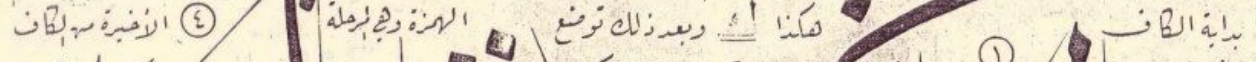 بداية الكاف هكذا ك وبعد ذلك توضع الهمزة وهي المرحلة ④ الأخيرة من الكاف
①